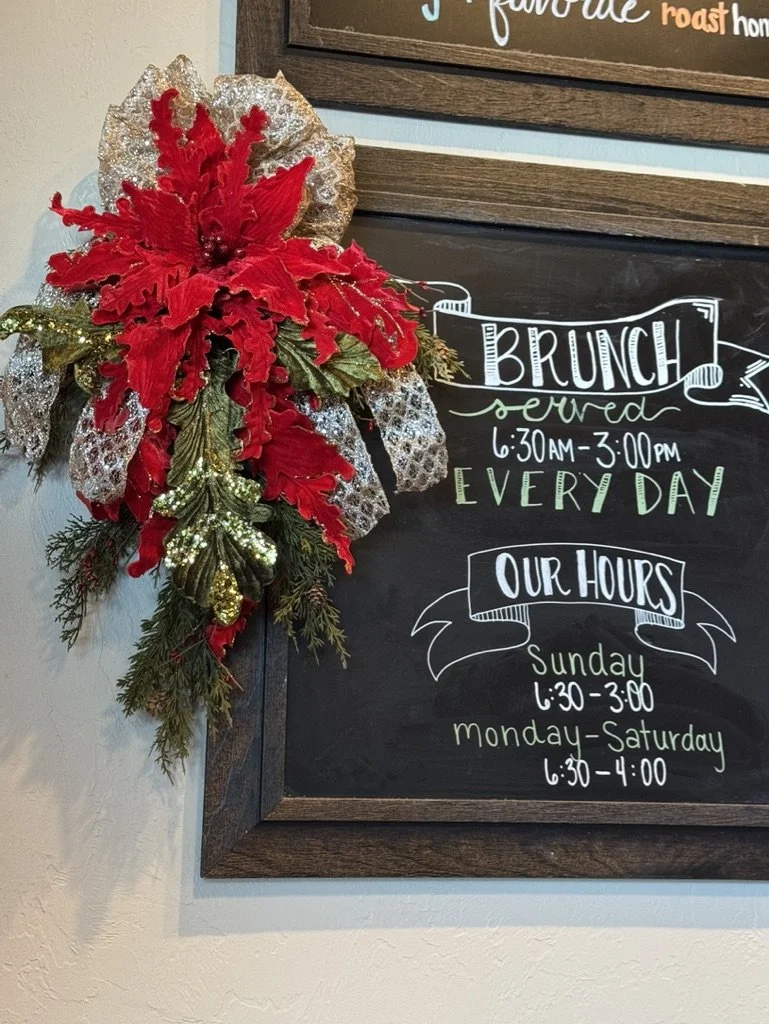 favorite roast hom
BRUNCH
served
6:30AM-3:00PM
EVERY DAY
OUR HOURS
Sunday
6:30-3:00
monday-Saturday
6:30-4:00